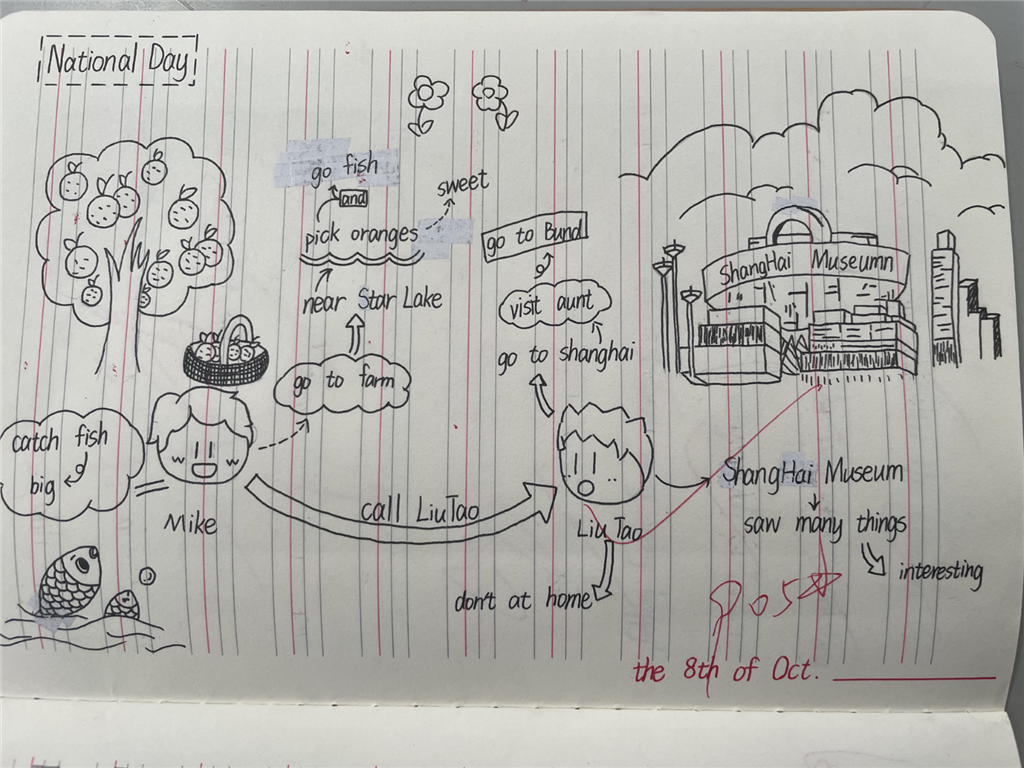 National Day
go fish
and
sweet
pick oranges
near Star Lake
go to farm
catch fish
big
Mike
call LiuTao
go to Bund
visit aunt
go to shanghai
Liu Tao
don't at home
ShangHai Museumn
ShangHai Museum
saw many things
interesting
the 8th of Oct.